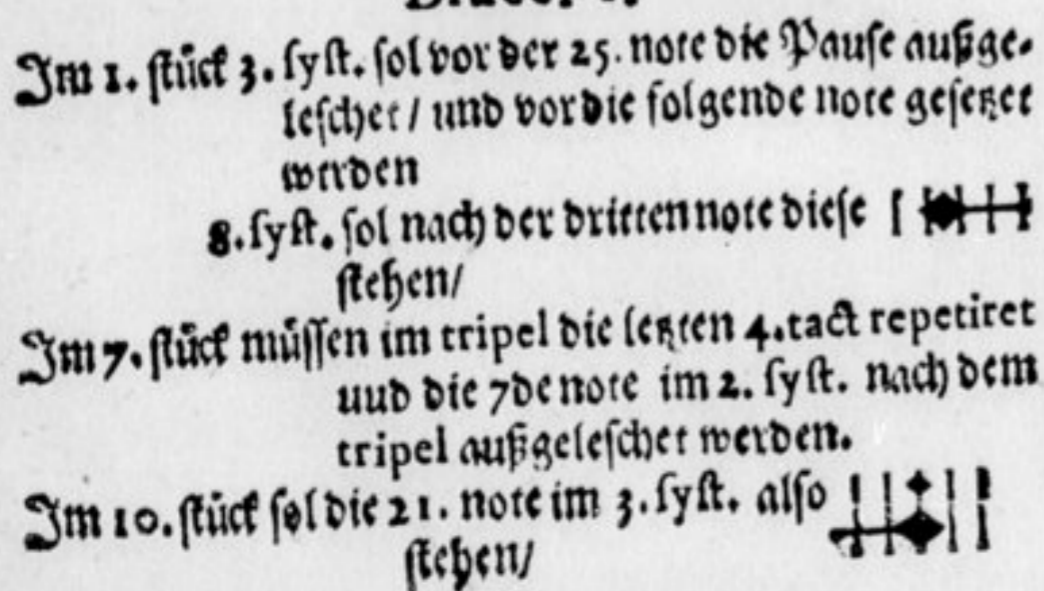 Im 1. stück 3. syst. sol vor der 25. note die Pause außge-
leschet / und vor die folgende note gesetzet
werden
8. syst. sol nach der dritten note diese
stehen/
Im 7. stück müssen im tripel die letzten 4. tact repetiret
uud die 7de note im 2. syst. nach dem
tripel außgeleschet werden.
Im 10. stück sol die 21. note im 3. syst. also
stehen/